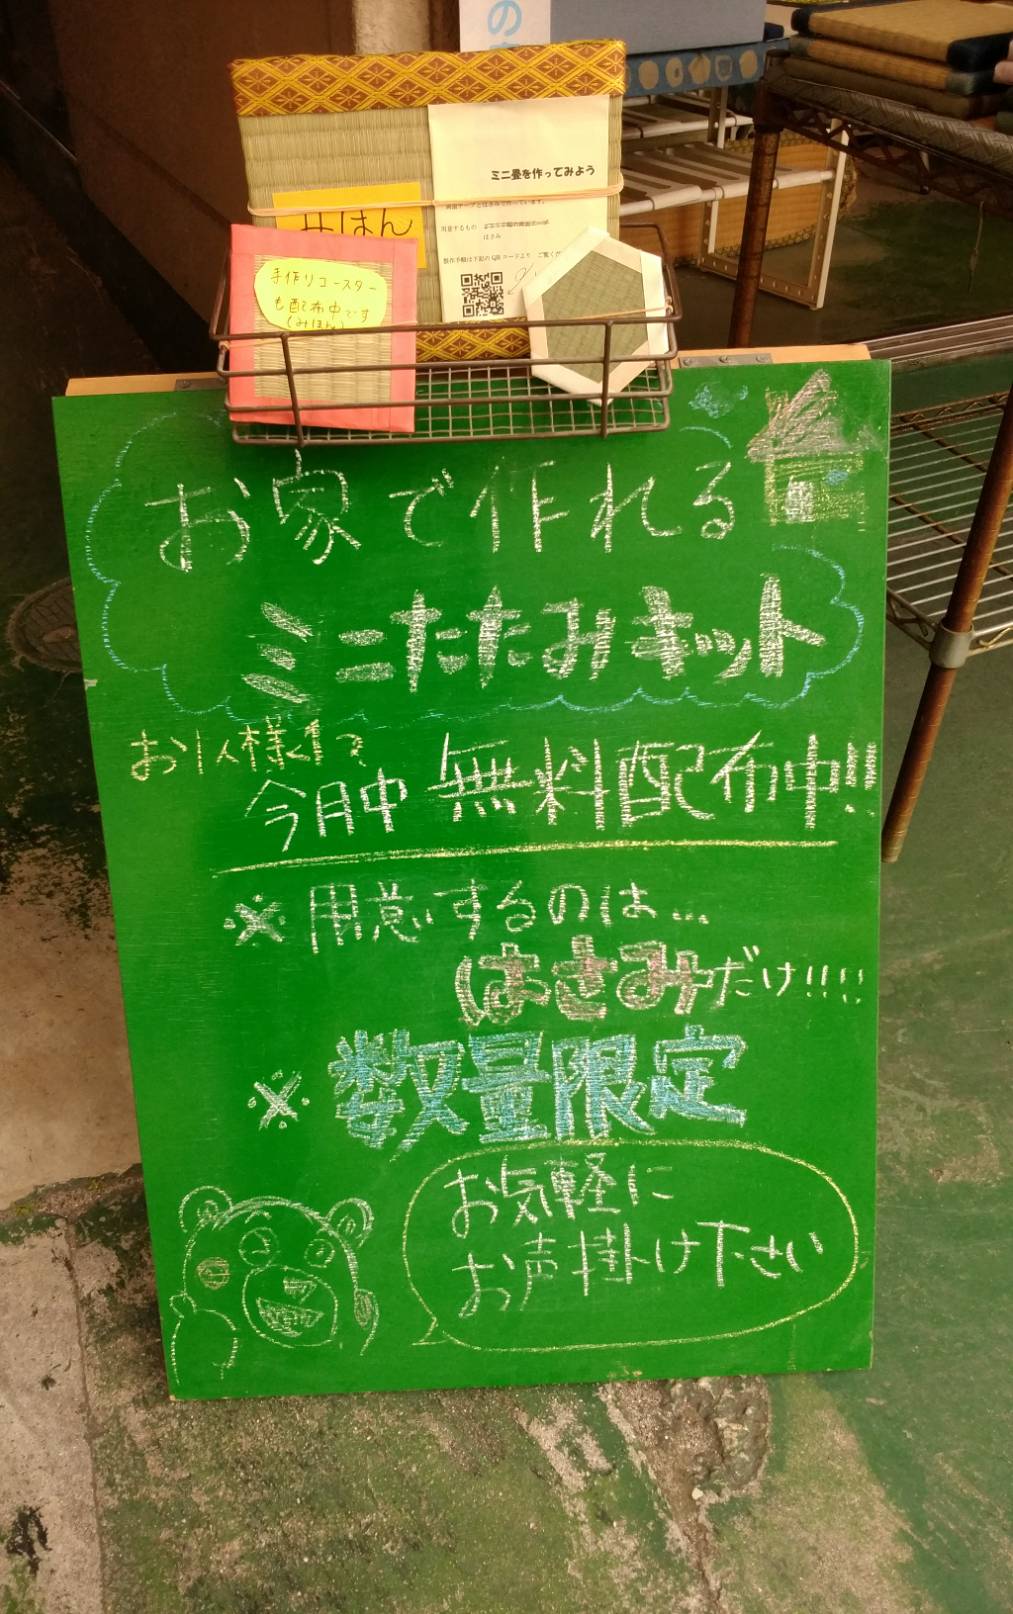 の
ミニ畳を作ってみよう
用意するもの
はさみ
みほん
手作りコースター
も配布中です
(みほん)
お家で作れる
ミニたたみキット
お1人様1コ
今月中 無料配布中!!
※用意するのは...
はさみだけ!!!!
※数量限定
お気軽に
お声掛け下さい